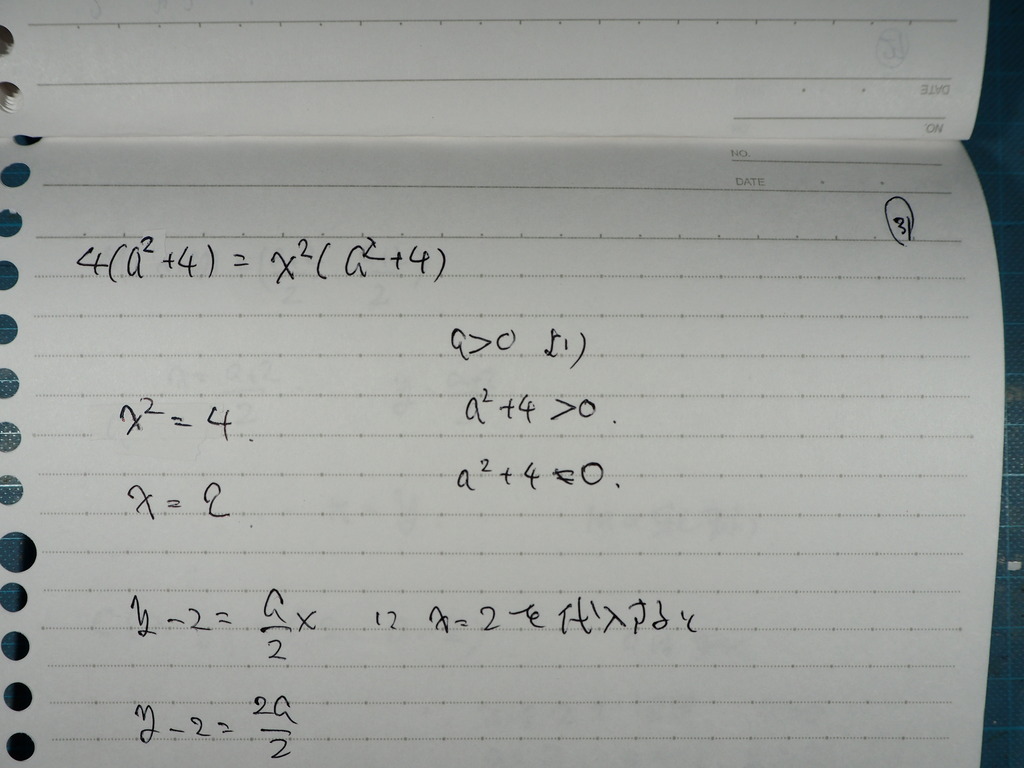 NO.
DATE
NO.
DATE
31
4(a²+4) = x²(a²+4)
a>0 より
x² = 4.
a²+4 >0.
x = 2
y-2 = a/2 x に x=2を代入すると
y-2 = 2a/2